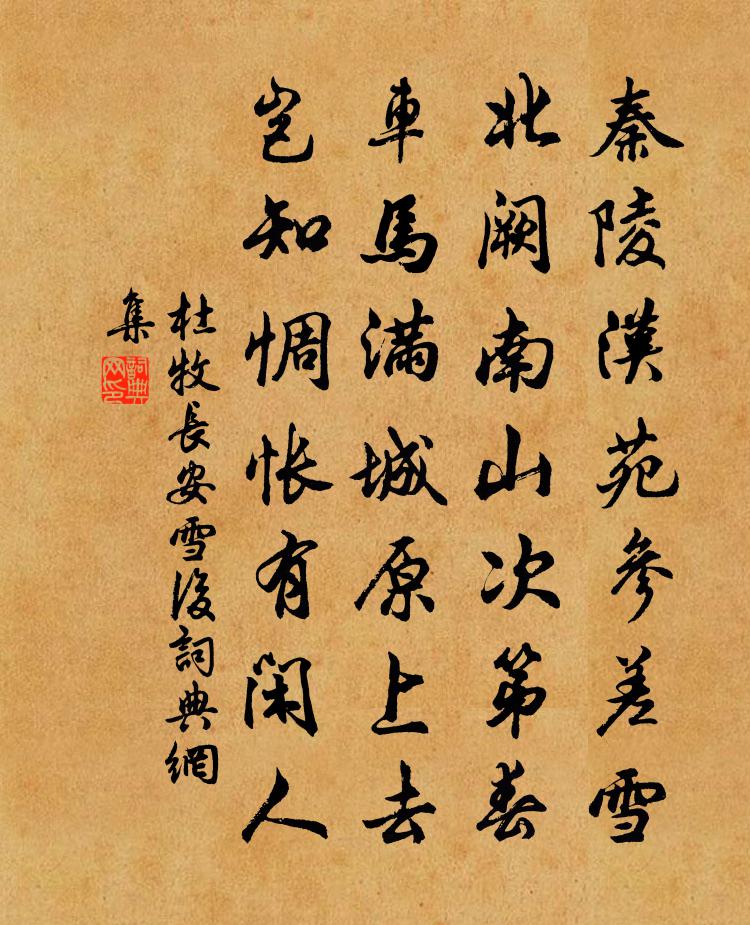 秦陵漢苑參差雪
北闕南山次第春
車馬滿城原上去
豈知惆悵有閑人
杜牧長安雪後詞典網
集
詞典
网印